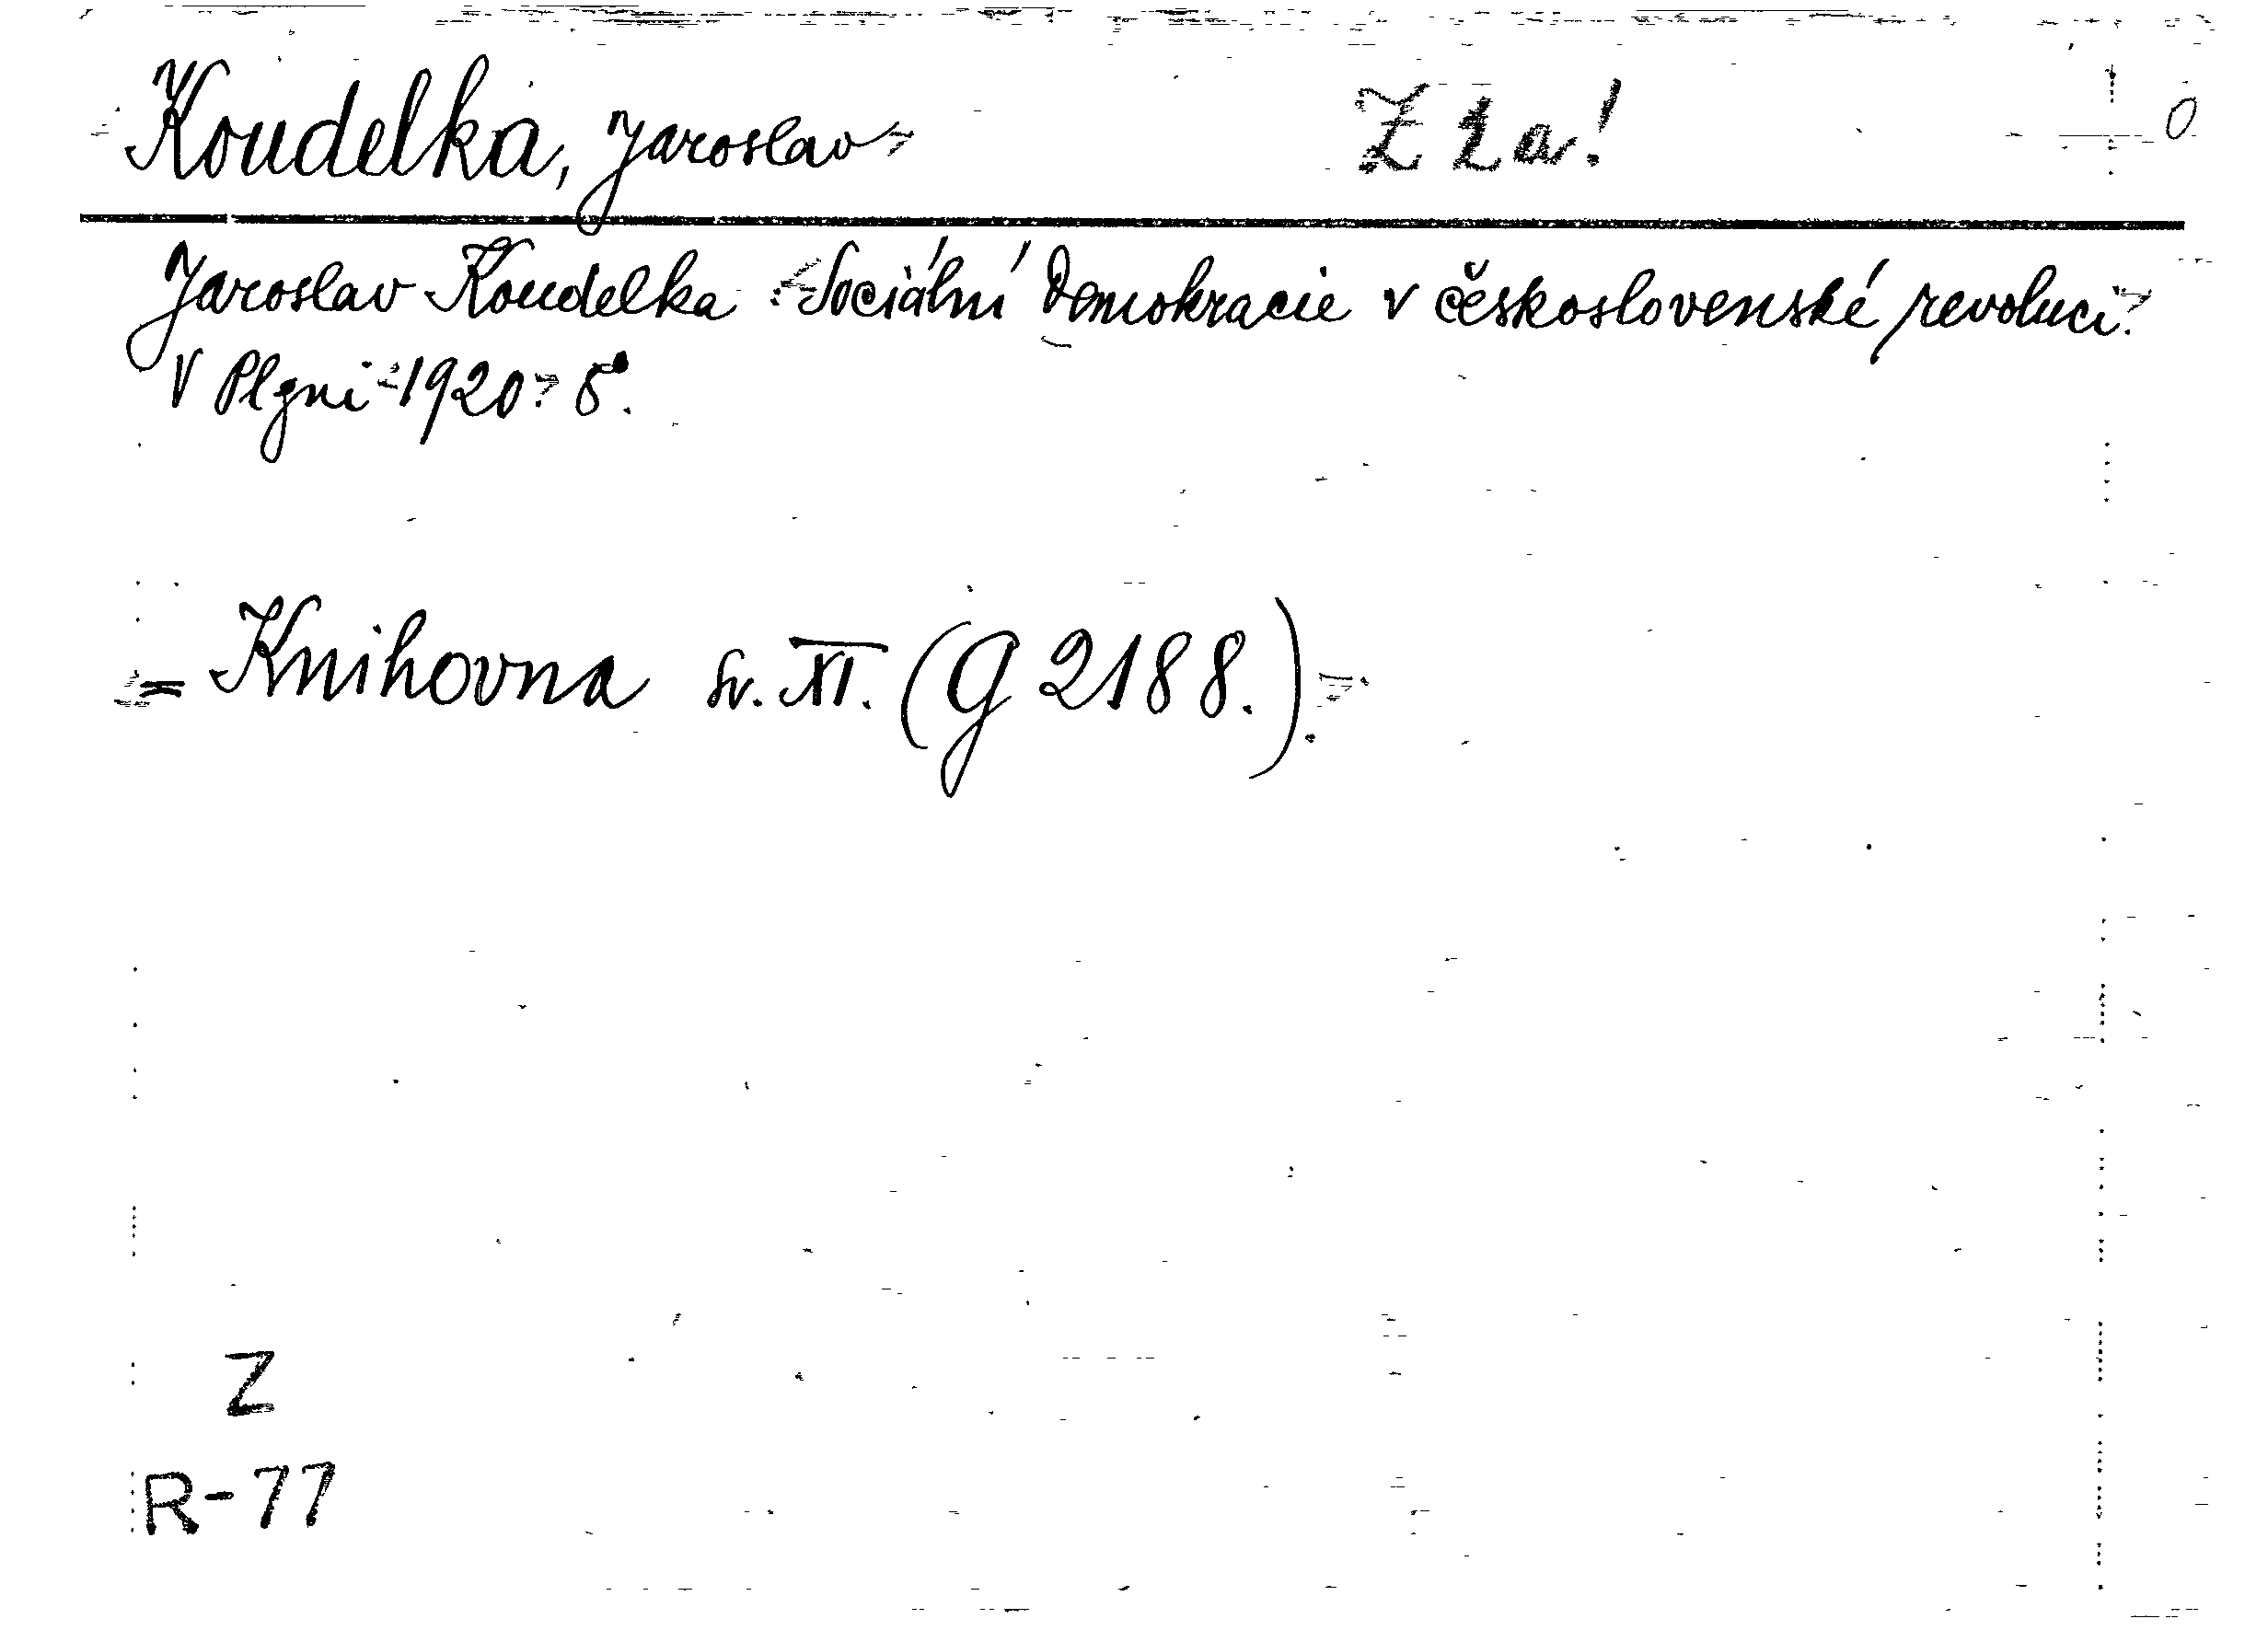 Koudelka, Jaroslav Z 2 a! 0
Jaroslav Koudelka: Sociální Demokracie v československé revoluci.
V Plzni 1920. 8°.
= Knihovna sv. XI. (G 2188.).
Z
R-77